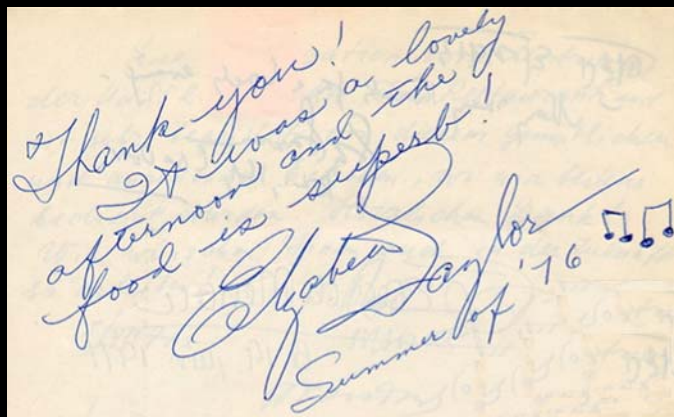 Thank you!
It was a lovely
afternoon and the
food is superb!
Elizabeth Taylor
Summer of '76